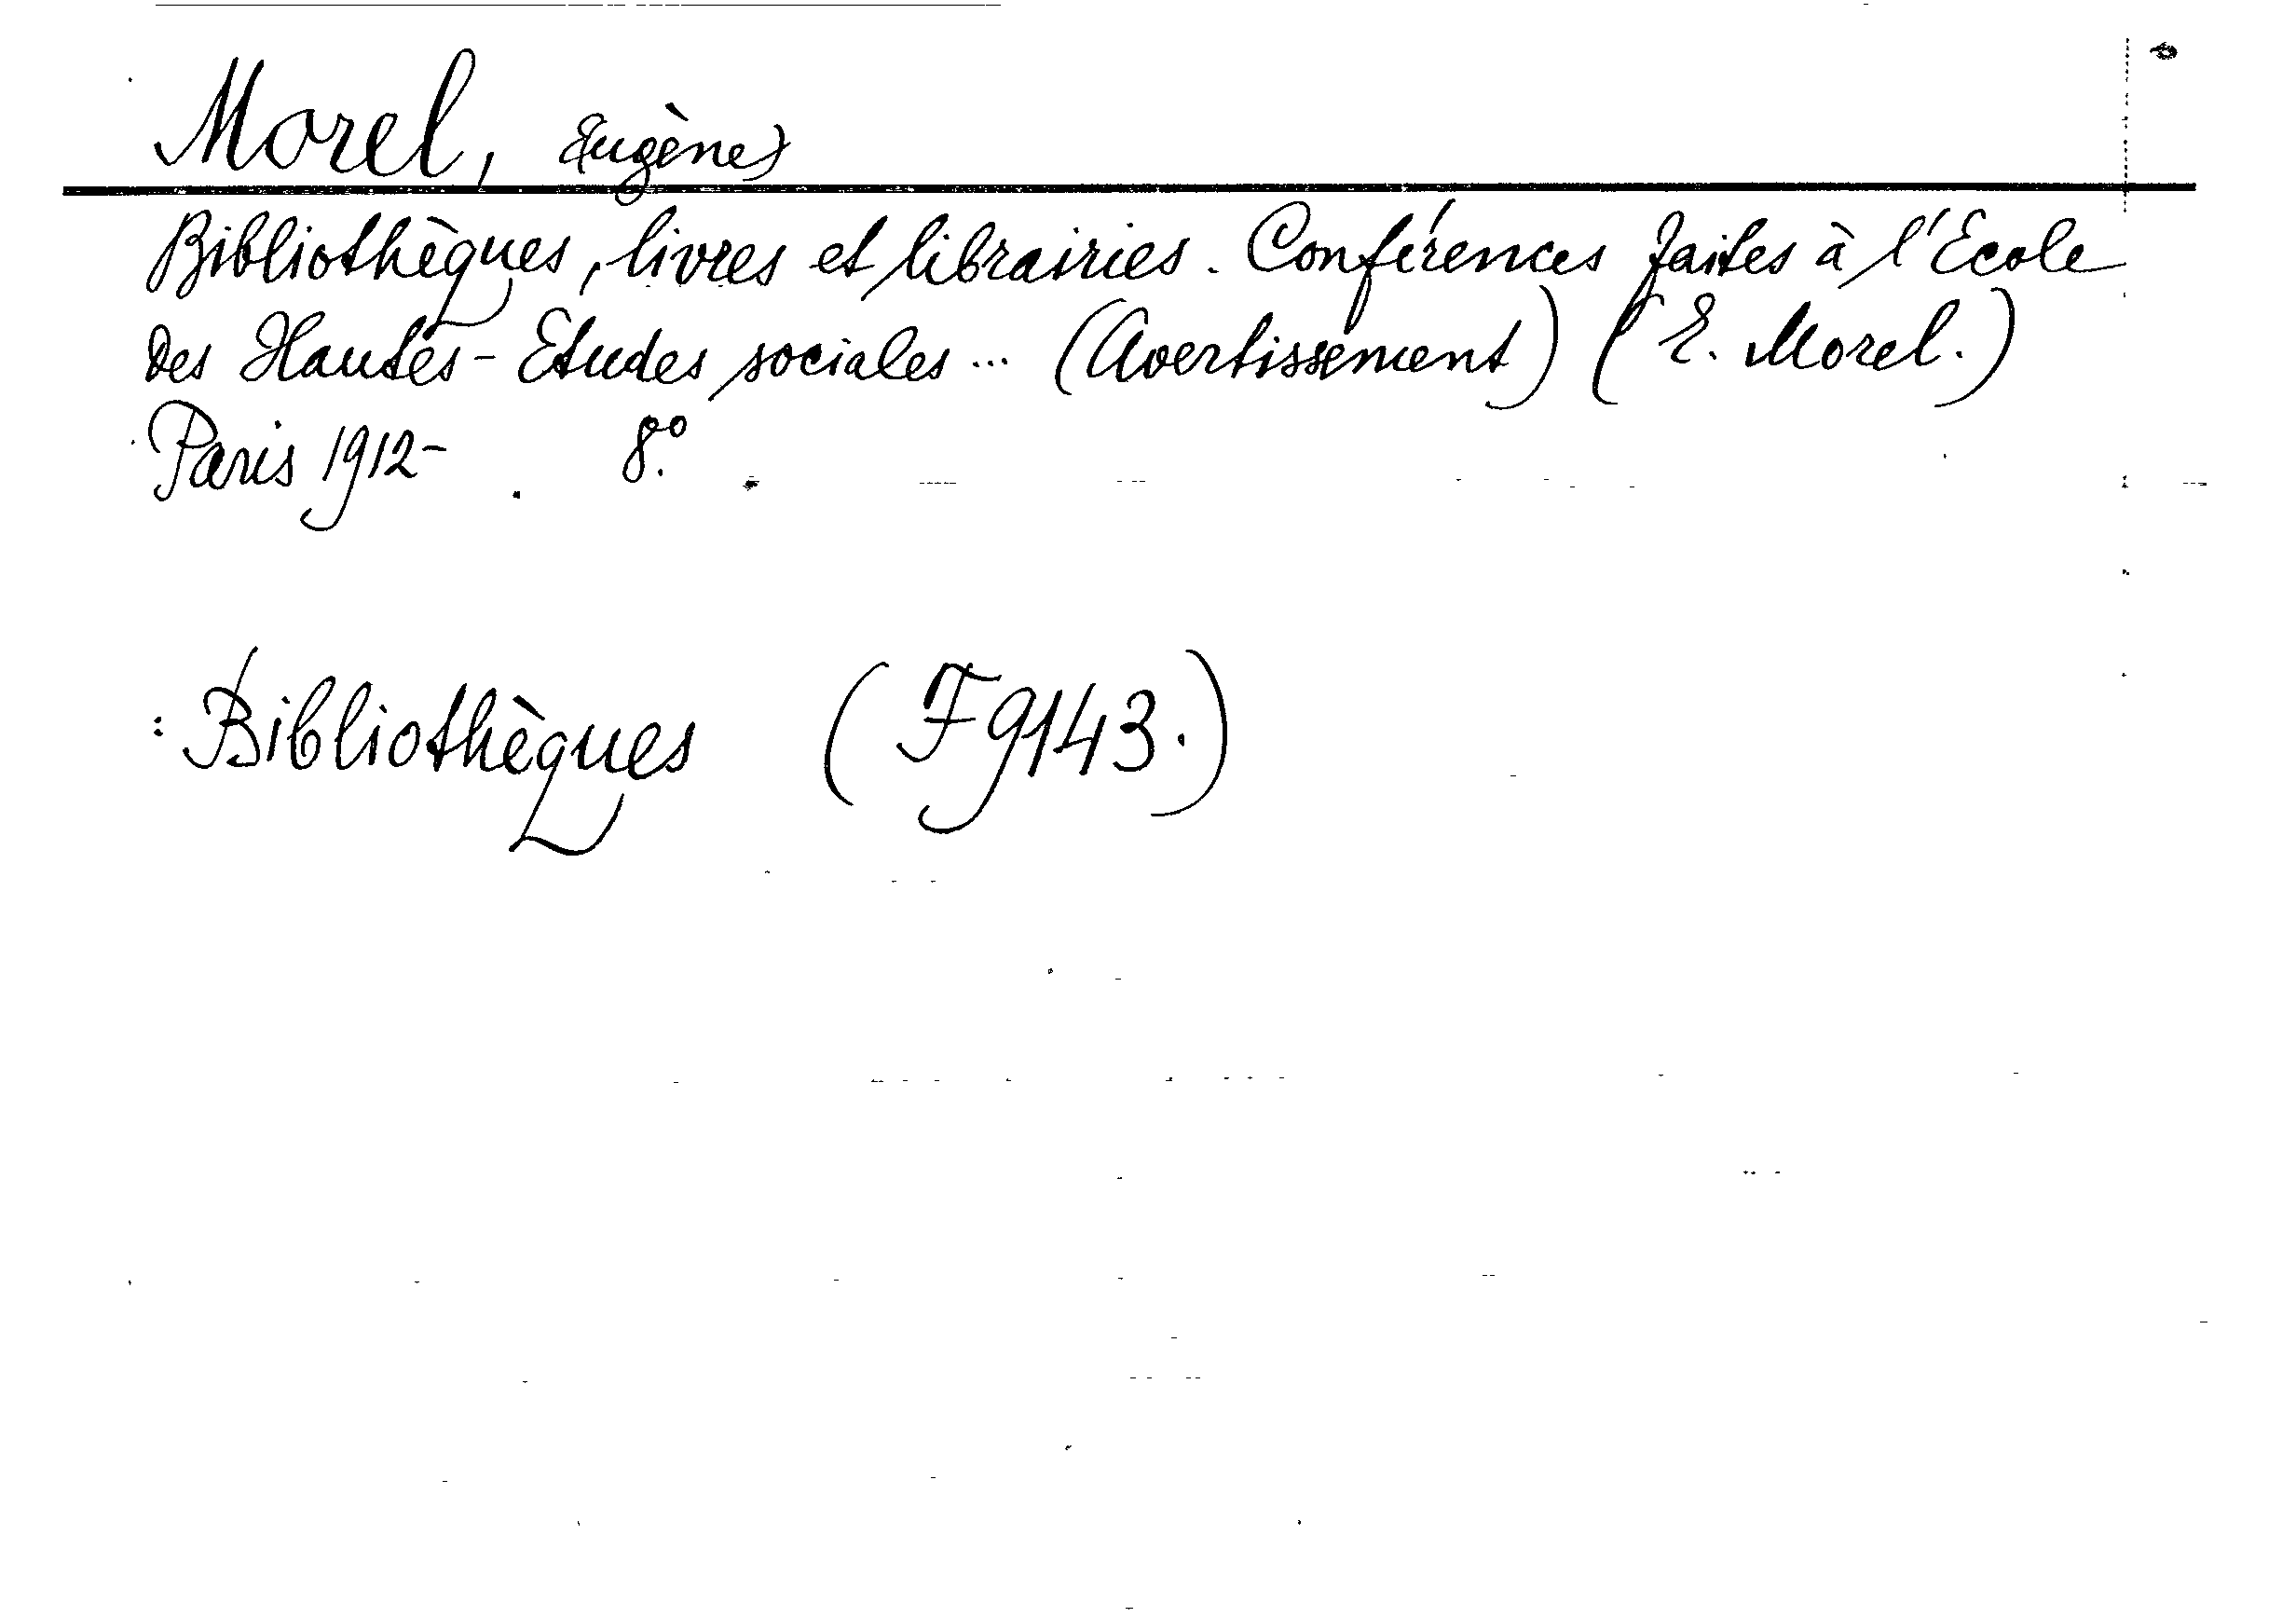 Morel, Eugène
Bibliothèques, livres et librairies. Conférences faites à l'Ecole
des Hautes-Etudes sociales... (Avertissement) (E. Morel.)
Paris 1912- 8°.
: Bibliothèques (F9143.)